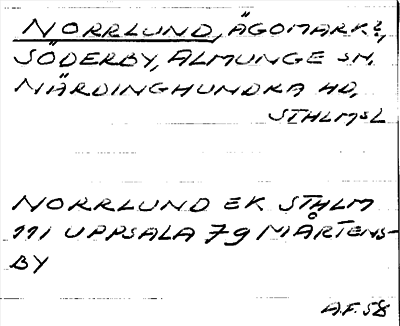 NORRLUND, ÄGOMARK?,
SÖDERBY, ALMUNGE SN,
NÄRDINGHUNDRA HD,
STHLMSL
NORRLUND EK STHLM
111 UPPSALA 79 MÅRTENS-
BY
A.F. 58